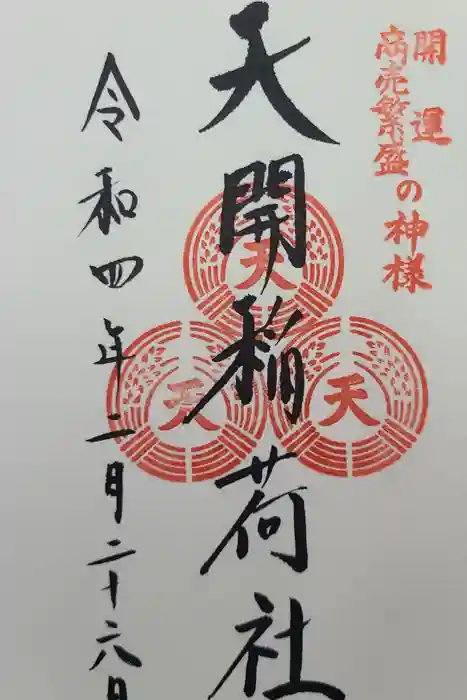 開運
商売繁盛
の神様
天開稲荷社
令和四年二月二十六日
天
天
天